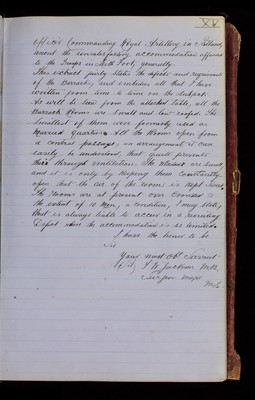 XV
Officer Commanding Royal Artillery in
anent the unsatisfactory accommodation afforded
to the Troops in Leith Fort, generally.
This extract fully states the defects and requirements
of the Barracks and embodies all that I have
written from time to time on the subject.
As will be seen from the attached Table, all the
Barrack Rooms are small and low roofed. The
smallest of them were formerly used as
Married Quarters. All the Rooms open from
a central passage, an arrangement it can
easily be understood, that quite prevents
their thorough ventilation. The Windows are small,
and it is only by keeping them constantly
open that the air of the room is kept
The Rooms are at present over crowded to
the extent of 10 Men, a condition, I may state,
that is always liable to occur in a recruiting
Depot when the accommodation is so limited.
I have the honor to be
Sir
Your most Obt Servant
Jackson M.D.
Surgeon Major